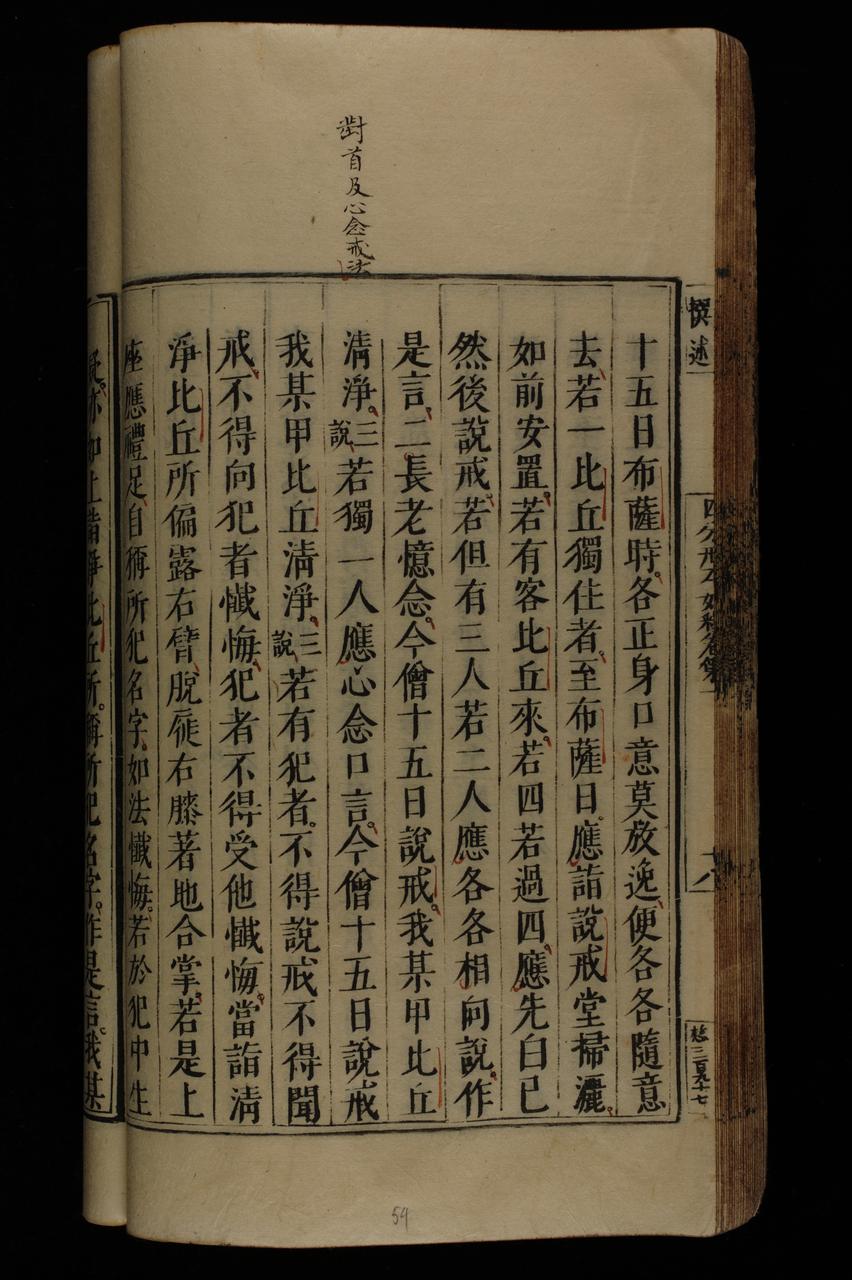 對首及心念戒法
撰述
十五日布薩時各正身口意莫放逸便各各隨意
去若一比丘獨住者至布薩日應詣說戒堂掃灑
如前安置若有客比丘來若四若過四應先白已
然後說戒若但有三人若二人應各各相向說作
是言二長老憶念今僧十五日說戒我某甲比丘
清淨三說若獨一人應心念口言今僧十五日說戒
我某甲比丘清淨三說若有犯者不得說戒不得聞
戒不得向犯者懺悔犯者不得受他懺悔當詣清
淨比丘所偏露右臂脫屣右膝著地合掌若是上
座應禮足自稱所犯名字如法懺悔若於犯中生
疑亦如上詣淨比丘所稱所犯名字作是言我某
54